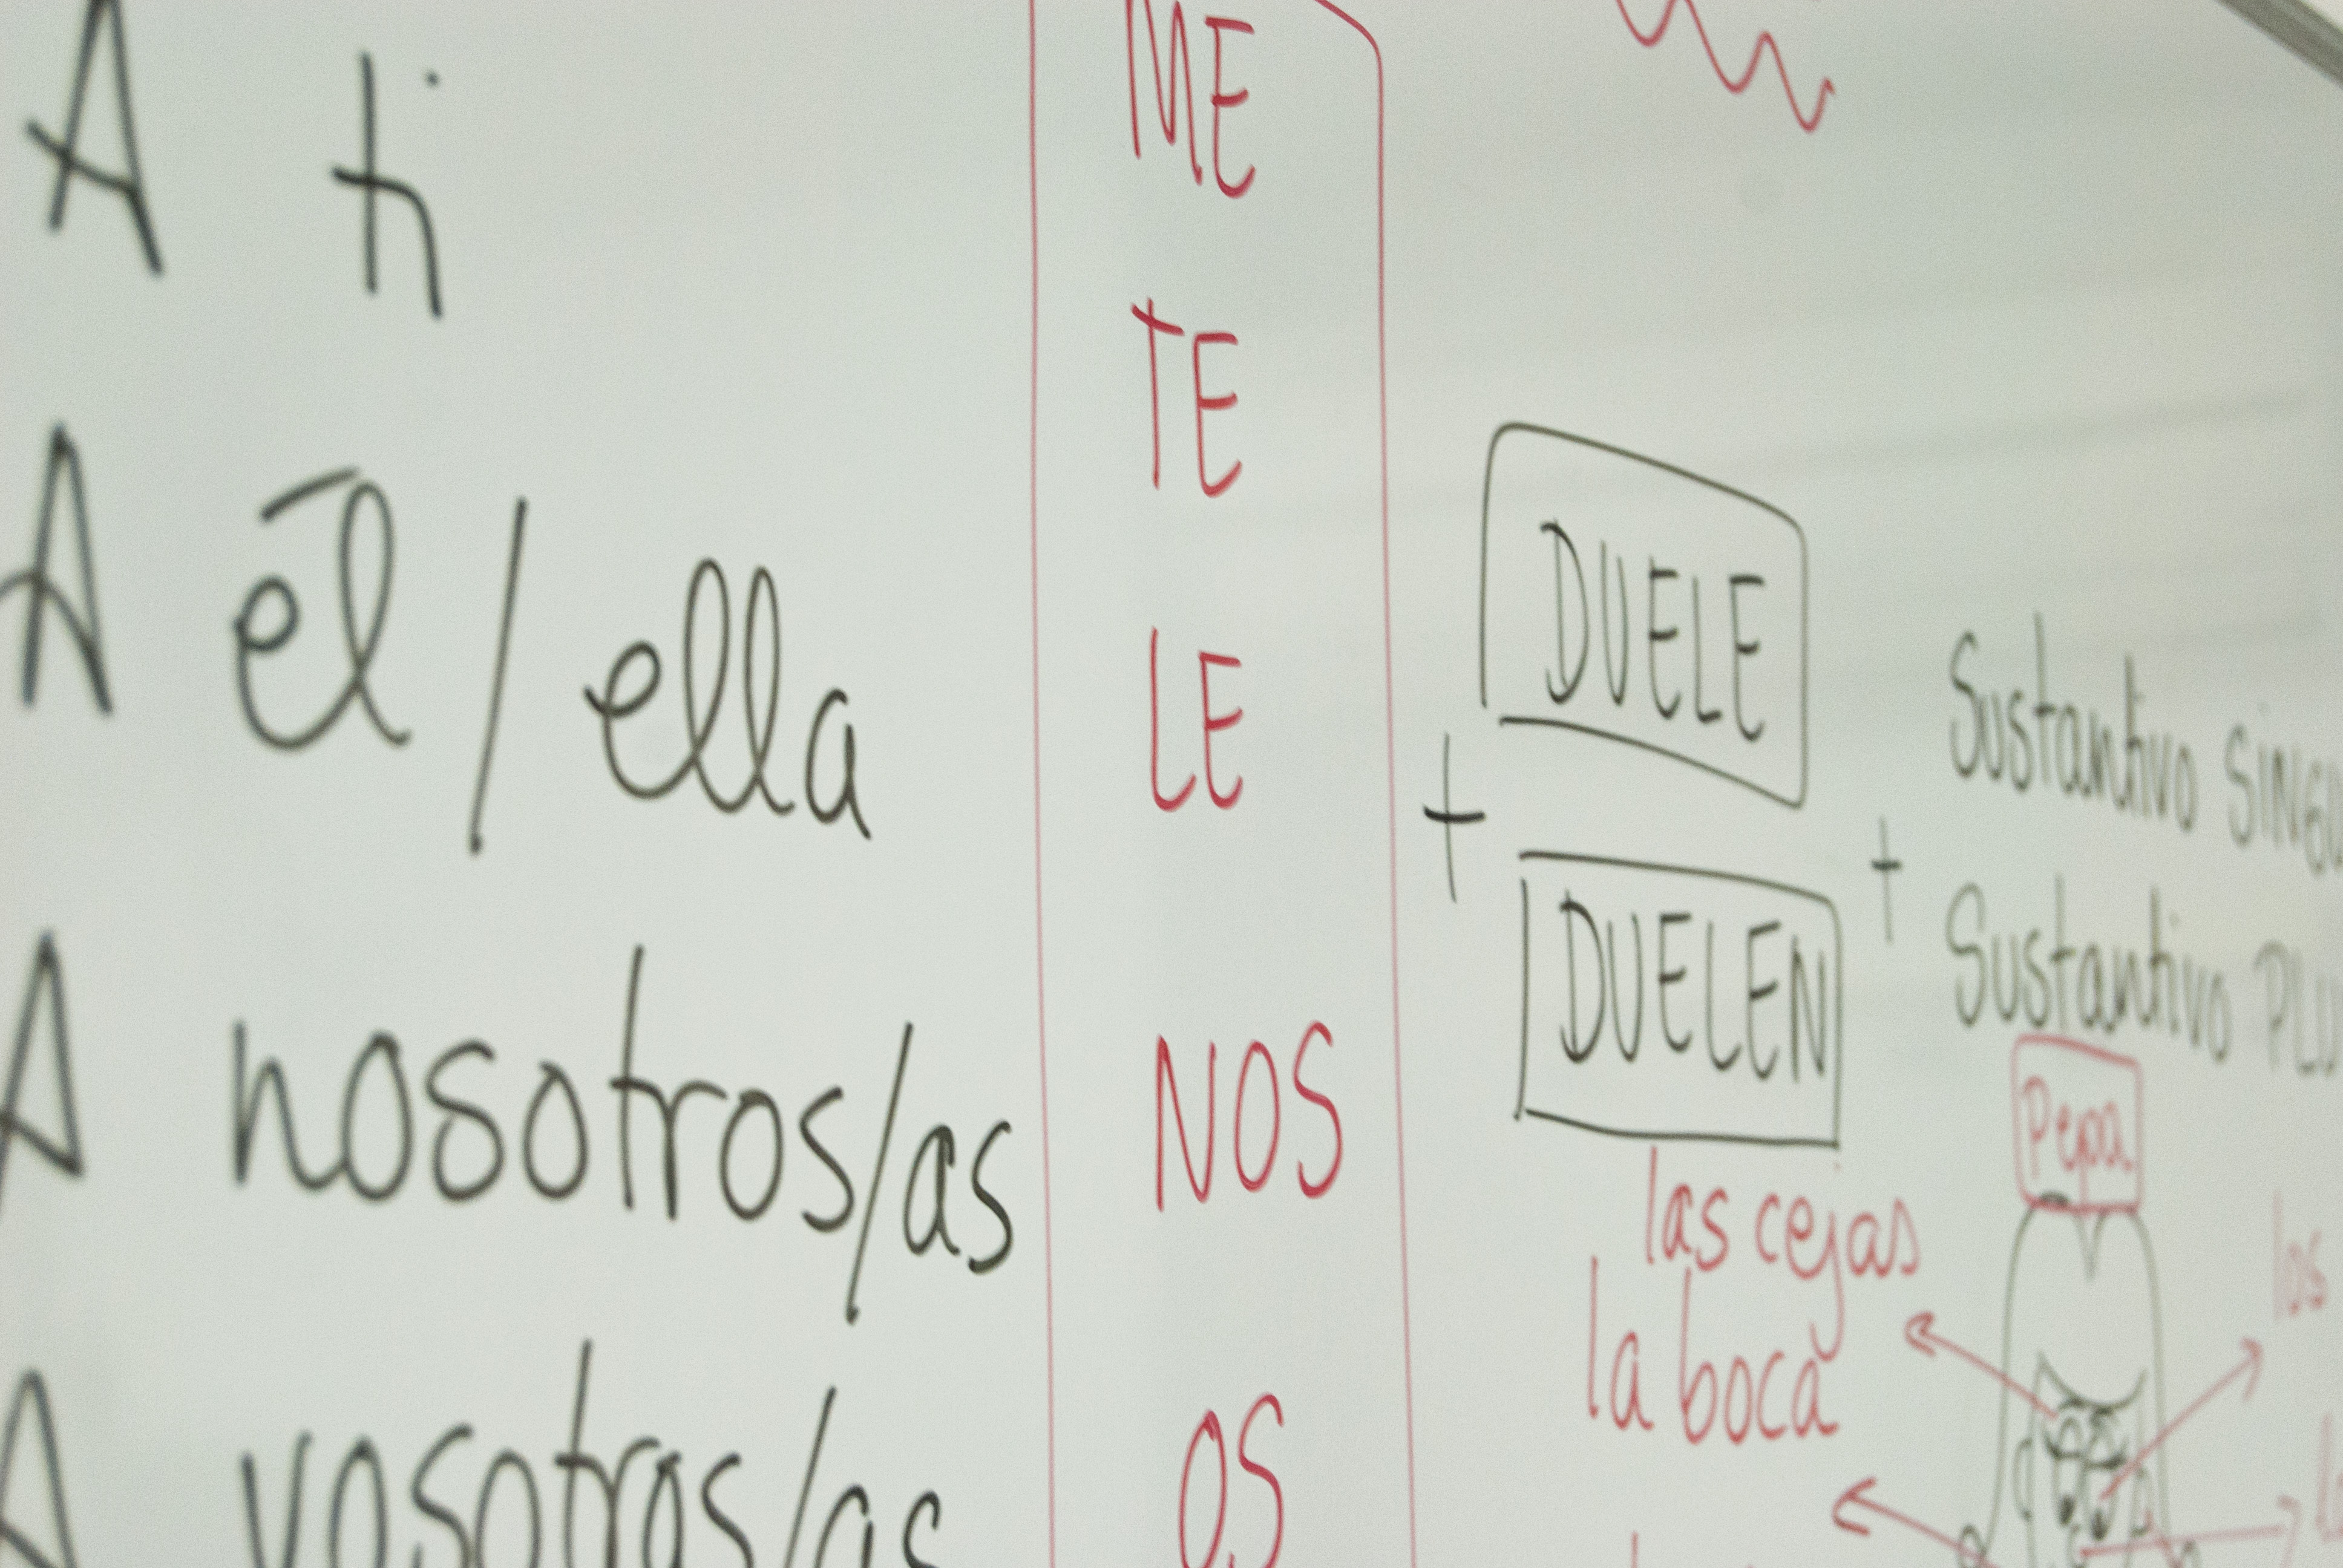 ME
A ti TE
A él/ella LE
DUELE
+ + Sustantivo
DUELEN Sustantivo
A nosotros/as NOS
Pepa
las cejas los
la boca
A vosotros/as OS